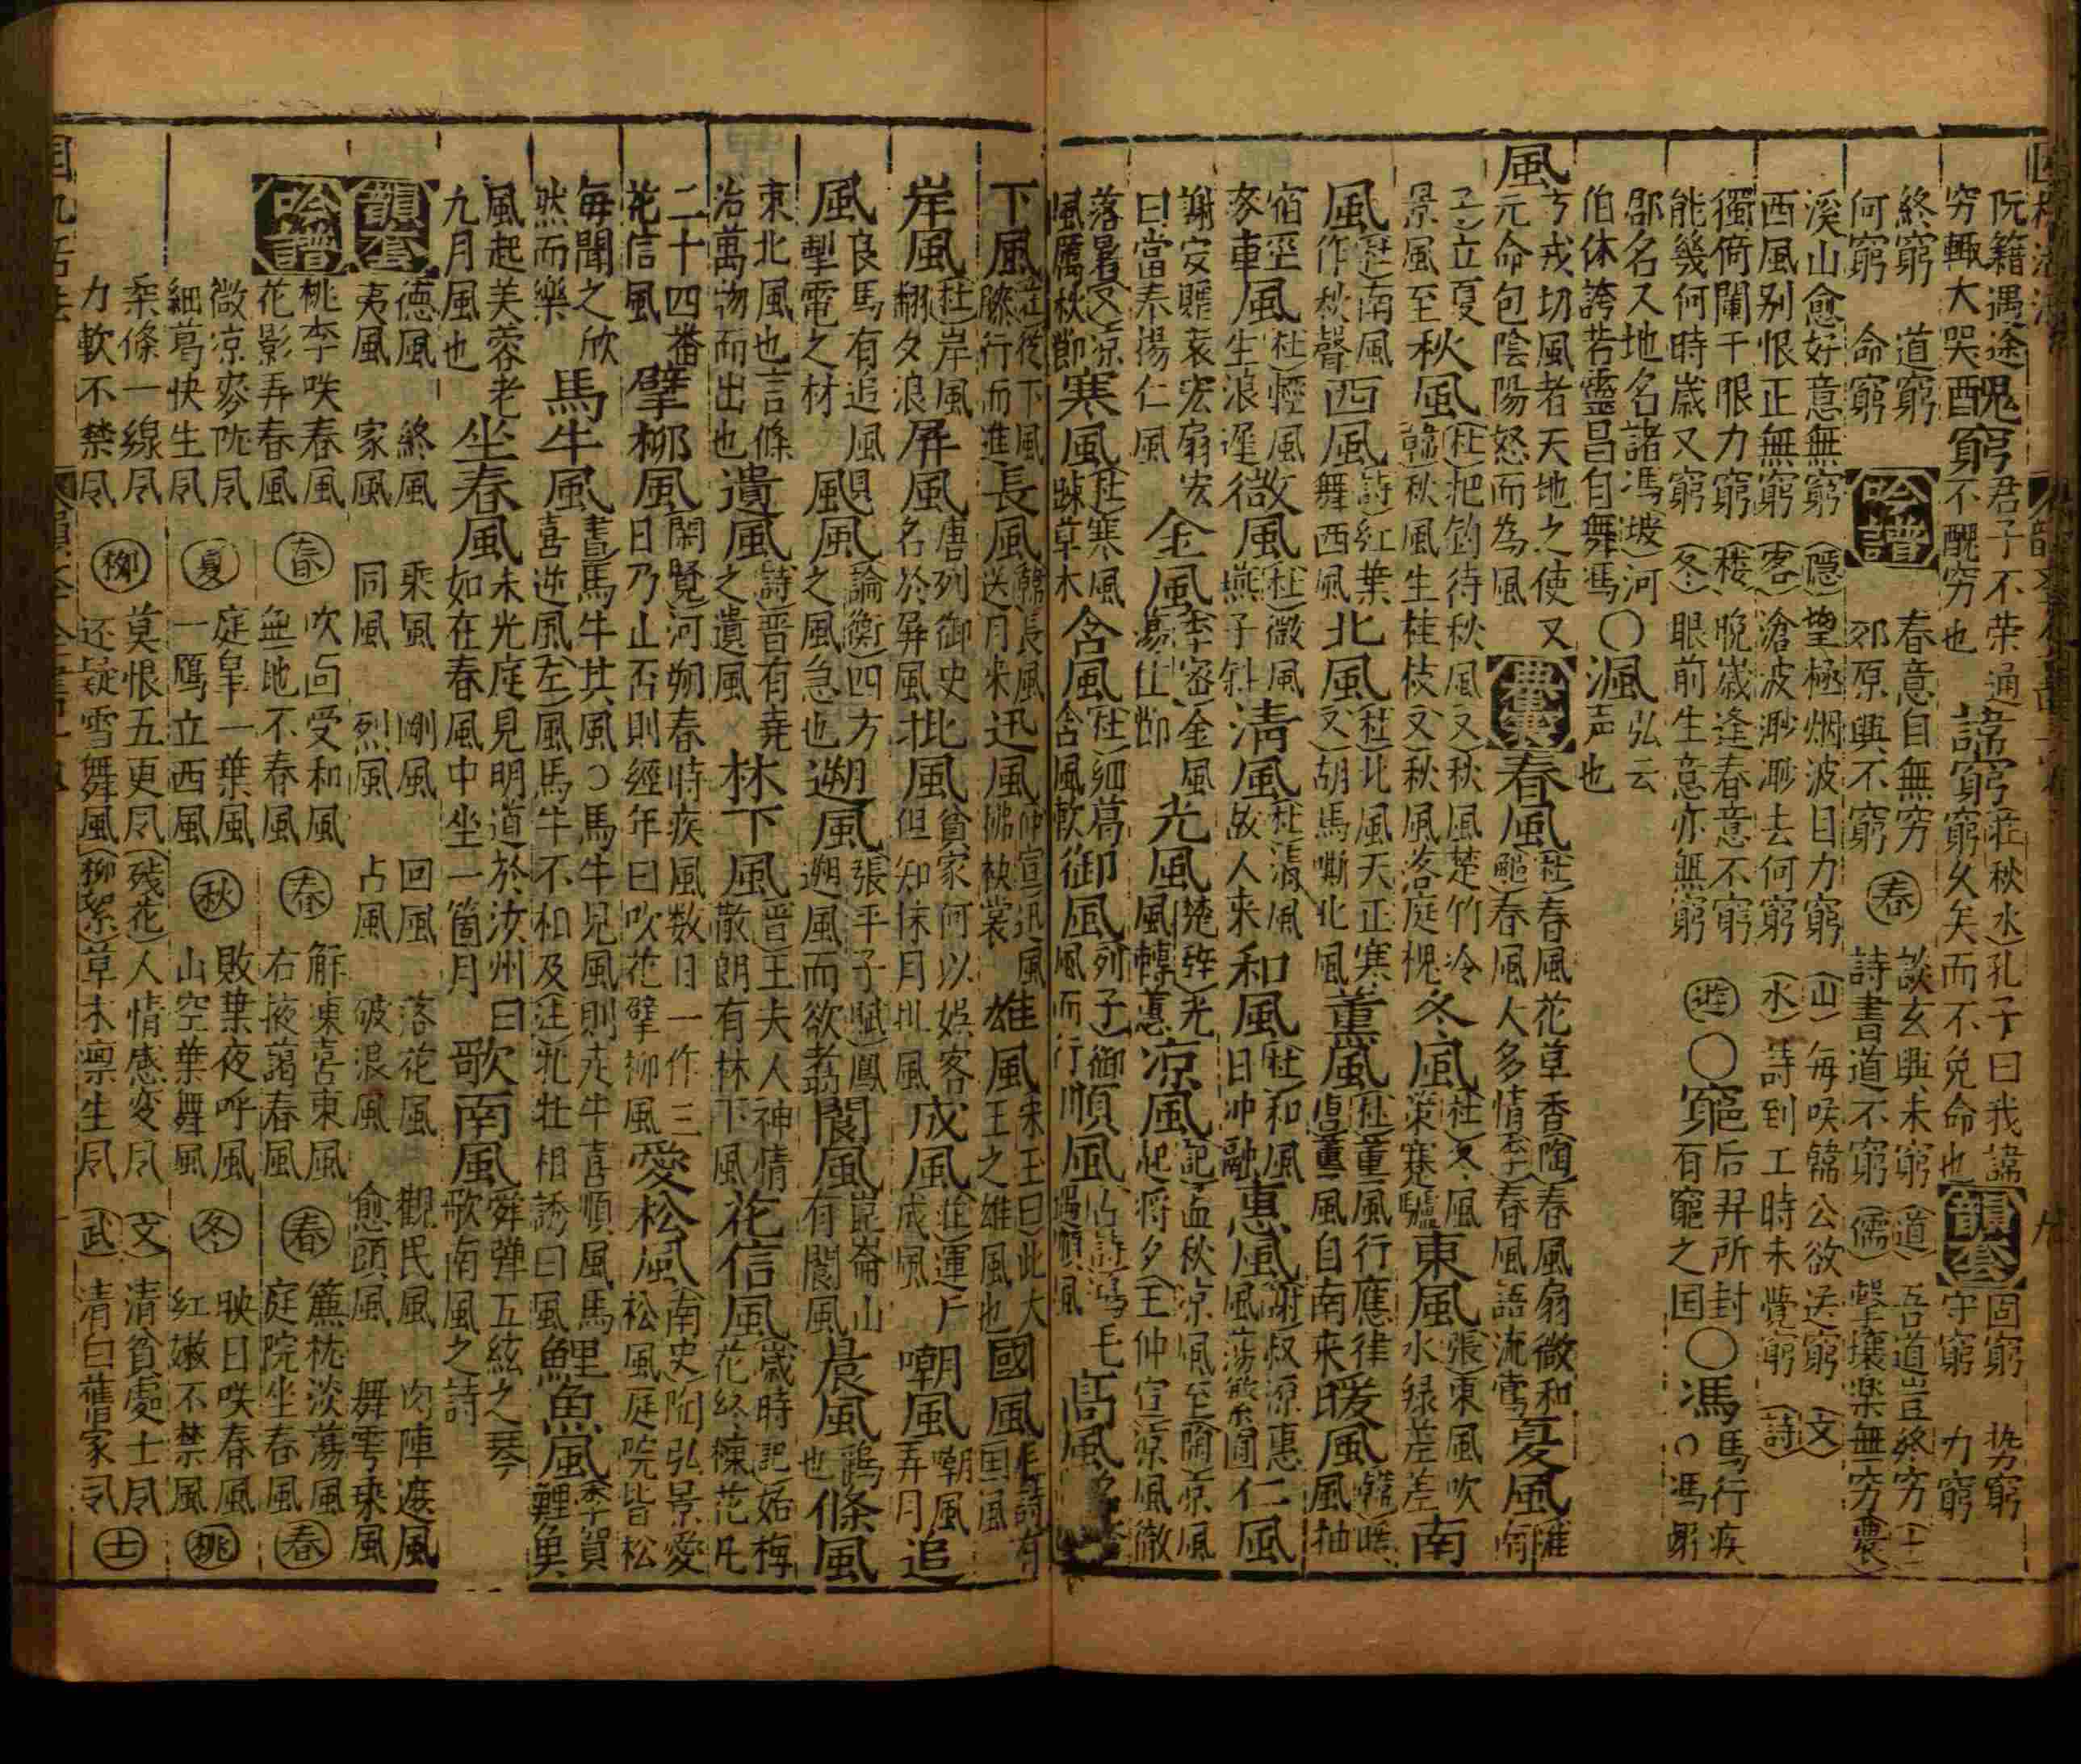 阮籍遇途
窮輙大哭䤈窮君子不荣通
不醜穷也
諱窮莊秋水孔子曰我諱
窮久矣而不免命也韻套固窮 㔟窮
守窮 力窮
終窮 道窮
何窮 命窮
吟譜
春意自無穷
郊原興不窮
春
談玄興未窮
詩書道不窮
道
儒
吾道豈終穷
撃壤楽無穷
農
溪山愈好意無窮
隱
望極烟波目力窮
山
每咲韓公欲送窮
文
西風别恨正無窮
客
滄波渺渺去何窮
水
詩到工時未覺窮
詩
獨倚闌干眼力窮
楼
晚嵗逢春意不窮
能幾何時歳又窮
冬
眼前生意亦無窮
遊
○窮后羿所封
有窮之国
○馮馬行疾
邵名又地名諸馮坡河
伯休誇若靈昌自舞馮
○渢弘云
声也
風方戎切風者天地之使又
元命包陰陽怒而為風
春風杜春風花草香陶春風扇微和
春風人多情李春風語流鶯
夏風
子立夏
景風至
秋風杜把釣待秋風又秋風楚竹冷
韓秋風生桂枝又秋風落庭槐
冬風杜冬風
策蹇驢
東風張東風吹
水緑差差
南
風杜南風
作秋聲
西風詩紅葉
舞西風
北風杜北風天正寒
又胡馬嘶北風
薰風杜薰風行應律
薰風自南来
暖風
宿
麥
車風杜輕風
生浪遲
微風杜微風
燕子斜
清風杜清風
故人来
和風杜和風
日冲融
惠風謝叔源惠
風蕩繁囿
仁風
謝安贈袁宏扇宏
曰當奉揚仁風
金風李密金風
蕩佳節
光風楚辞光
風轉蕙
凉風記孟秋凉風至陶凉風
起将夕王仲宣凉風徹
落暑又凉
風厲秋節
寒風杜寒風
疎草木
含風杜細葛
含風軟
御風列子御
風而行
順風
遇順風
高風
下風莊從下風
膝行而進
長風韓長風
送月来
迅風仲宣迅風
拂袂裳
雄風宋玉曰此大
王之雄風也
國風毛詩有
国風
岸風杜岸風
翻夕浪
屏風唐列御史
名於屏風
批風貧家何以娯客
但知抹月批風
成風莊運斤
成風
嘲風嘲風
弄月
追
風良馬有追風
掣電之材
颶風論衡四方
之風急也
遡風張平子賦鳳
遡風而欲翥
閬風崑崙山
有閬風
晨風鸇
也
條風
東北風也言條
治萬物而出也
遺風詩晋有堯
之遺風
林下風晋王夫人神情
散朗有林下風
花信風嵗時記始梅
花終楝花凡
二十四番
花信風
擘柳風閑覽河朔春時疾風数日一作三
日乃止否則經年曰吹花擘柳風
愛松風南史陶弘景愛
松風庭院皆松
每聞之欣
然而樂
馬牛風書馬牛其風○馬牛見風則走牛喜順風馬
喜逆風左風馬牛不相及注牝牡相誘曰風
鯉魚風李賀
鯉魚
風起芙蓉老
九月風也
坐春風朱光庭見明道於汝州曰
如在春風中坐一箇月
歌南風舜弹五絃之琴
歌南風之詩
韻套
徳風 終風 乘風 剛風 回風 落花風 觀民風 肉陣遮風
夷風 家風 同風 烈風 占風 破浪風 愈頭風 舞雩乘風
吟譜
桃李咲春風
花影弄春風
春
吹面受和風
無地不春風
春
解凍喜東風
右掖藹春風
春
簾枕淡蕩風
庭院坐春風
春
微凉麥隴風
細葛快生風
夏
庭皐一葉風
一鴈立西風
秋
敗葉夜呼風
山空葉舞風
冬
映日咲春風
紅嫩不禁風
桃
柔條一線風
力軟不禁風
柳
莫恨五更風
還疑雪舞風
残花
柳絮
人情感変風
草木凛生風
文
武
清貧處士風
清白舊家風
士